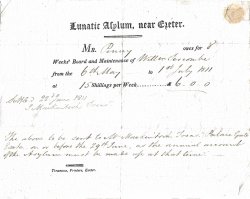 Lunatic Asylum, near Exeter.
Mr. Penny owes for 8
Weeks' Board and Maintenance of
from the 6th May to 1st July 1811
at 15 Shillings per Week £6.0.0
Settled 22nd June 1811
The above to be sent to Mr
on or before the 29th June, as the annual account
of the Asylum must be made up at that time
Trewman, Printer, Exeter.